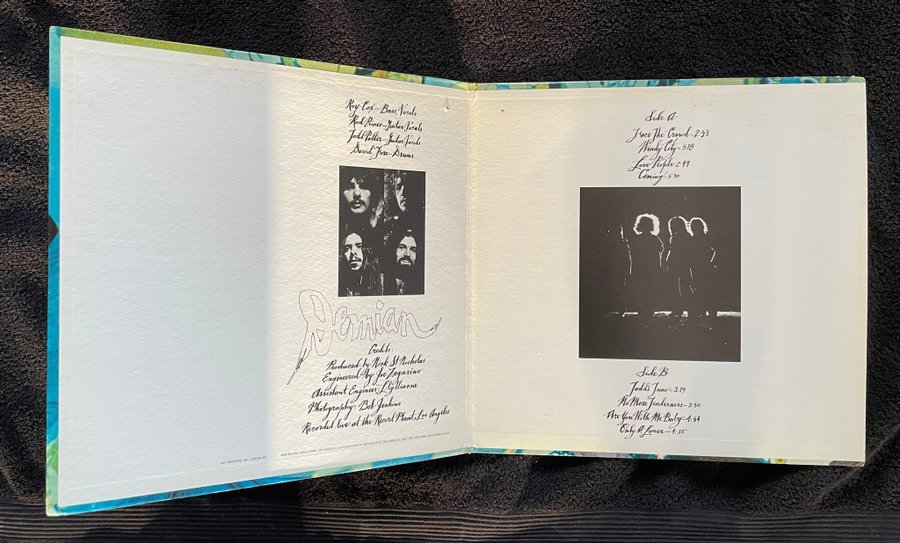 Roy Cox—Bass, Vocals
Rod Prince—Guitar, Vocals
Todd Potter—Guitar, Vocals
David Fore—Drums
Demian
Credits:
Produced by Nick St. Nicholas
Engineered by Joe Zagarino
Assistant Engineer:
Photography: Bob Jenkins
Recorded live at the Record Plant, Los Angeles
ABC RECORDS, INC.
Side A
Face The Crowd—2:53
Windy City—5:18
Love People—2:49
Coming—5:70
Side B
Todd's Tune—3:19
No More Tenderness—3:50
Are You With Me Baby—4:54
Only A Loner—4:35